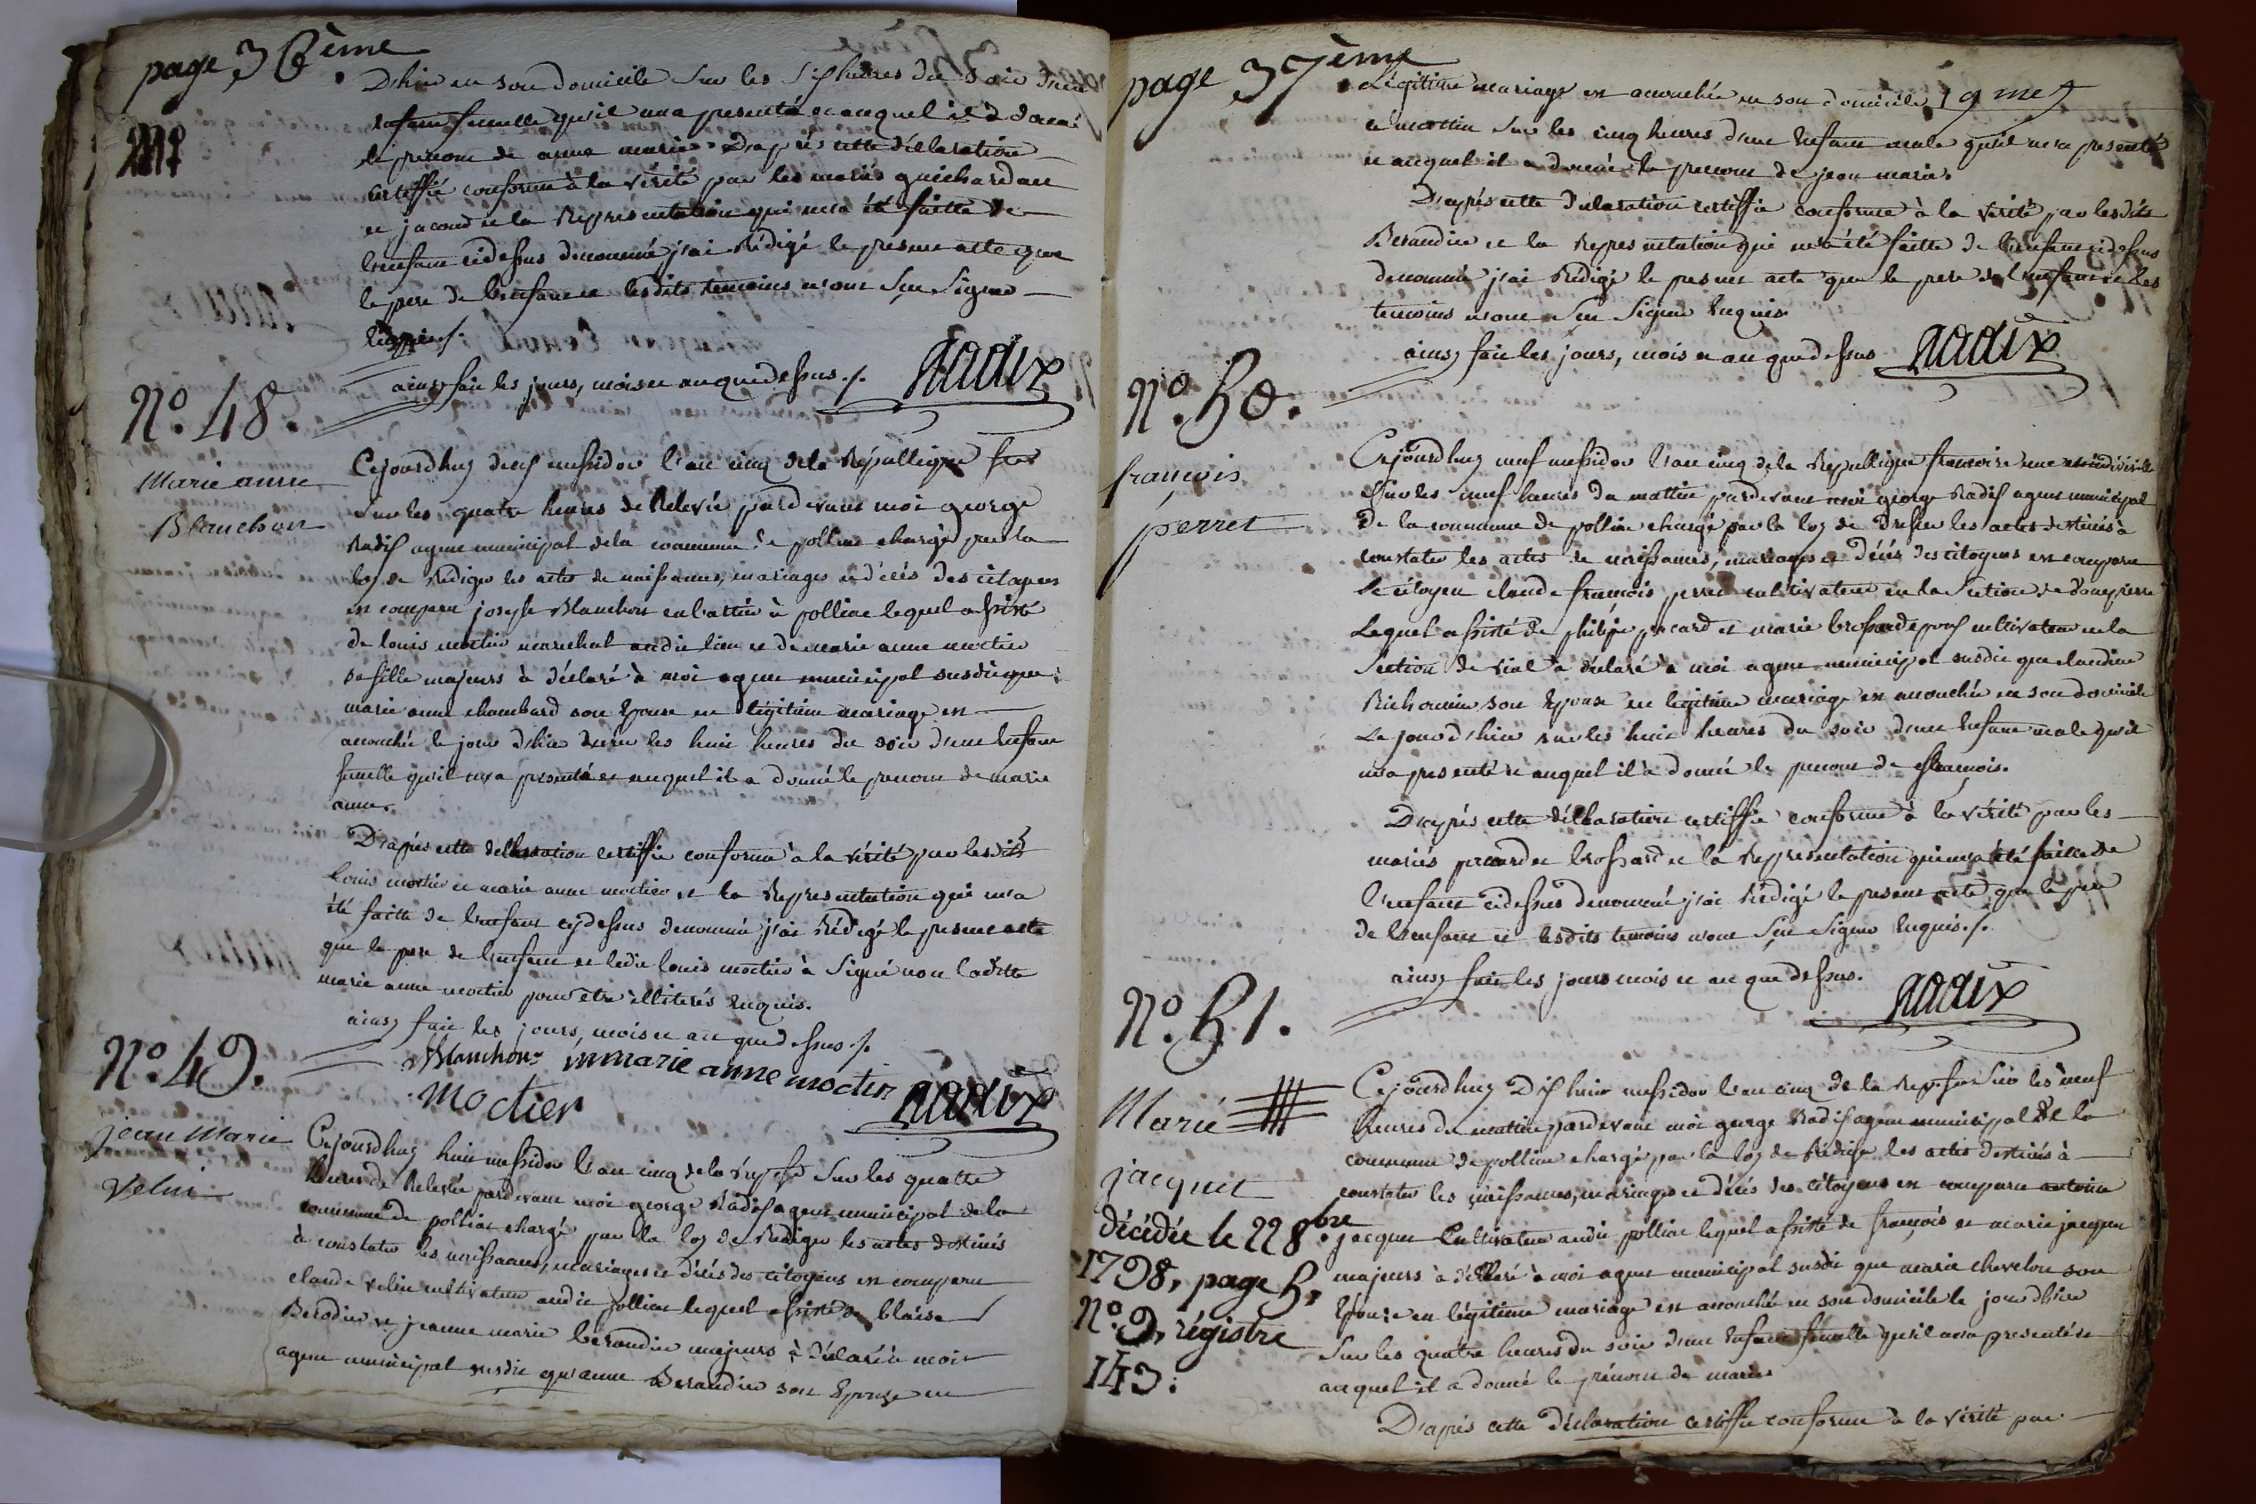 page 36ème
D'hier en son domicile sur les six heures du soir d'une
enfant femelle qu'il m'a presenté et auquel il a donné
le prenom de anne marie. D'aprés cette déclaration
certiffié conforme à la vérité par les mariés guichardan
et jacond et la représentation qui m'a été faitte de
l'enfant cidessus denommé j'ai rédigé le present acte que
le pere de l'enfant et lesdits temoins n'ont sçu signer
enquis ./.
ainsy fait les jours, mois et an que dessus ./. Radix
N.° 48.
Marie anne
Blanchon
Cejourdhuy dix messidor l'an cinq de la Républlique fse
sur les quatre heures de Relevé pardevant moi george
Radix agent municipal de la commune de polliat chargé par la
loy de rédiger les actes de naissances, mariages et décés des citoyens
est comparu joseph Blanchon à polliat lequel assisté
de louis moctier marechal audit lieu et de marie anne moctier
sa fille majeurs à déclaré à moi agent municipal susdit que
marie anne chambard son Epouse en légitime mariage est
accouchée le jour d'hier sur les huit heures du soir d'une enfant
femelle qu'il m'a presenté et auquel il a donné le prenom de marie
anne.
D'aprés cette déllaration certiffié conforme à la vérité par lesdits
louis moctier et marie anne moctier et la representation qui m'a
été faitte de l'enfant cy dessus denommé j'ai rédigé le present acte
que le pere de l'enfant et ledit louis moctier à signé non ladite
marie anne moctier pour être illiterés enquis.
ainsy fait les jours, mois et an que dessus ./.
Blanchon marie anne moctier
moctier Radix
N.° 49.
jean Marie
velui
Cejourdhuy huit messidor l'an cinq de la rep fse sur les quatre
heures de Relevée pardevant moi george Radix agent municipal de la
commune de polliat chargé par la loy de rediger les actes destinés
à constater les naissances, mariages et décés des citoyens est comparu
claude velui cultivateur audit polliat lequel assisté de blaise
Beraudier et jeanne marie beraudier majeurs à déclaré à moi
agent municipal susdit qu'anne Beraudier son Epouse en
page 37ème
Légitime mariage est accouchée en son domicile
ce mattin sur les cinq heures d'une enfant male qu'il m'a presenté
et auquel il a donné le prenom de jean marie.
D'aprés cette déclaration certiffié conforme à la vérité par lesdits
Beraudier et la representation qui m'a été faitte de l'enfant cidessus
denommé j'ai rédigé le present acte que le pere de l'enfant et les
temoins n'ont sçu signer enquis.
ainsy fait les jours, mois et an que dessus Radix
N.° 50.
françois
perret
Cejourdhuy neuf messidor l'an cinq de la Republlique francoise une et indivisible
sur les neuf heures du mattin pardevant moi george Radix agent municipal
de la commune de polliat chargé par la loy de dresser les actes destinés à
constater les actes de naissances, mariages et décés des citoyens est comparu
le citoyen claude françois perret cultivateur en la section de dompierre
Lequel assisté de philipe picard et marie brossard epoux cultivateur en la
section de vial à déclaré à moi agent municipal susdit que claudine
Richonnin son epouse en légitime mariage est accouchée en son domicile
le jour d'hier sur les huit heures du soir d'une enfant male qu'il
m'a presenté et auquel il a donné le prenom de françois.
D'aprés cette déllaration certiffié conforme à la vérité par les
mariés picard et brossard et la representation qui m'a été faitte de
l'enfant cidessus denommé j'ai rédigé le present acte que le pere
de l'enfant et lesdits temoins n'ont sçu signer enquis ./.
ainsy fait les jours mois et an que dessus. Radix
N.° 51.
Marie
jacquet
décédée le 22 8.bre
1798, page 5,
N.° 9, régistre
143.
Cejourdhuy dix huit messidor l'an cinq de la rep. fse sur les neuf
heures du mattin pardevant moi george Radix agent municipal de la
commune de polliat chargé par la loy de rédiger les actes destinés à
constater les naissances, mariages et décés des citoyens est comparu antoine
jacquet cultivateur audit polliat lequel assisté de françois et marie jacquet
majeurs à déllaré à moi agent municipal susdit que marie chevelon son
Epouse en légitime mariage est accouchée en son domicile le jour d'hier
sur les quatre heures du soir d'une enfant femelle qu'il m'a presenté et
auquel il a donné le prénom de marie
D'aprés cette déclaration certiffié conforme à la vérité par